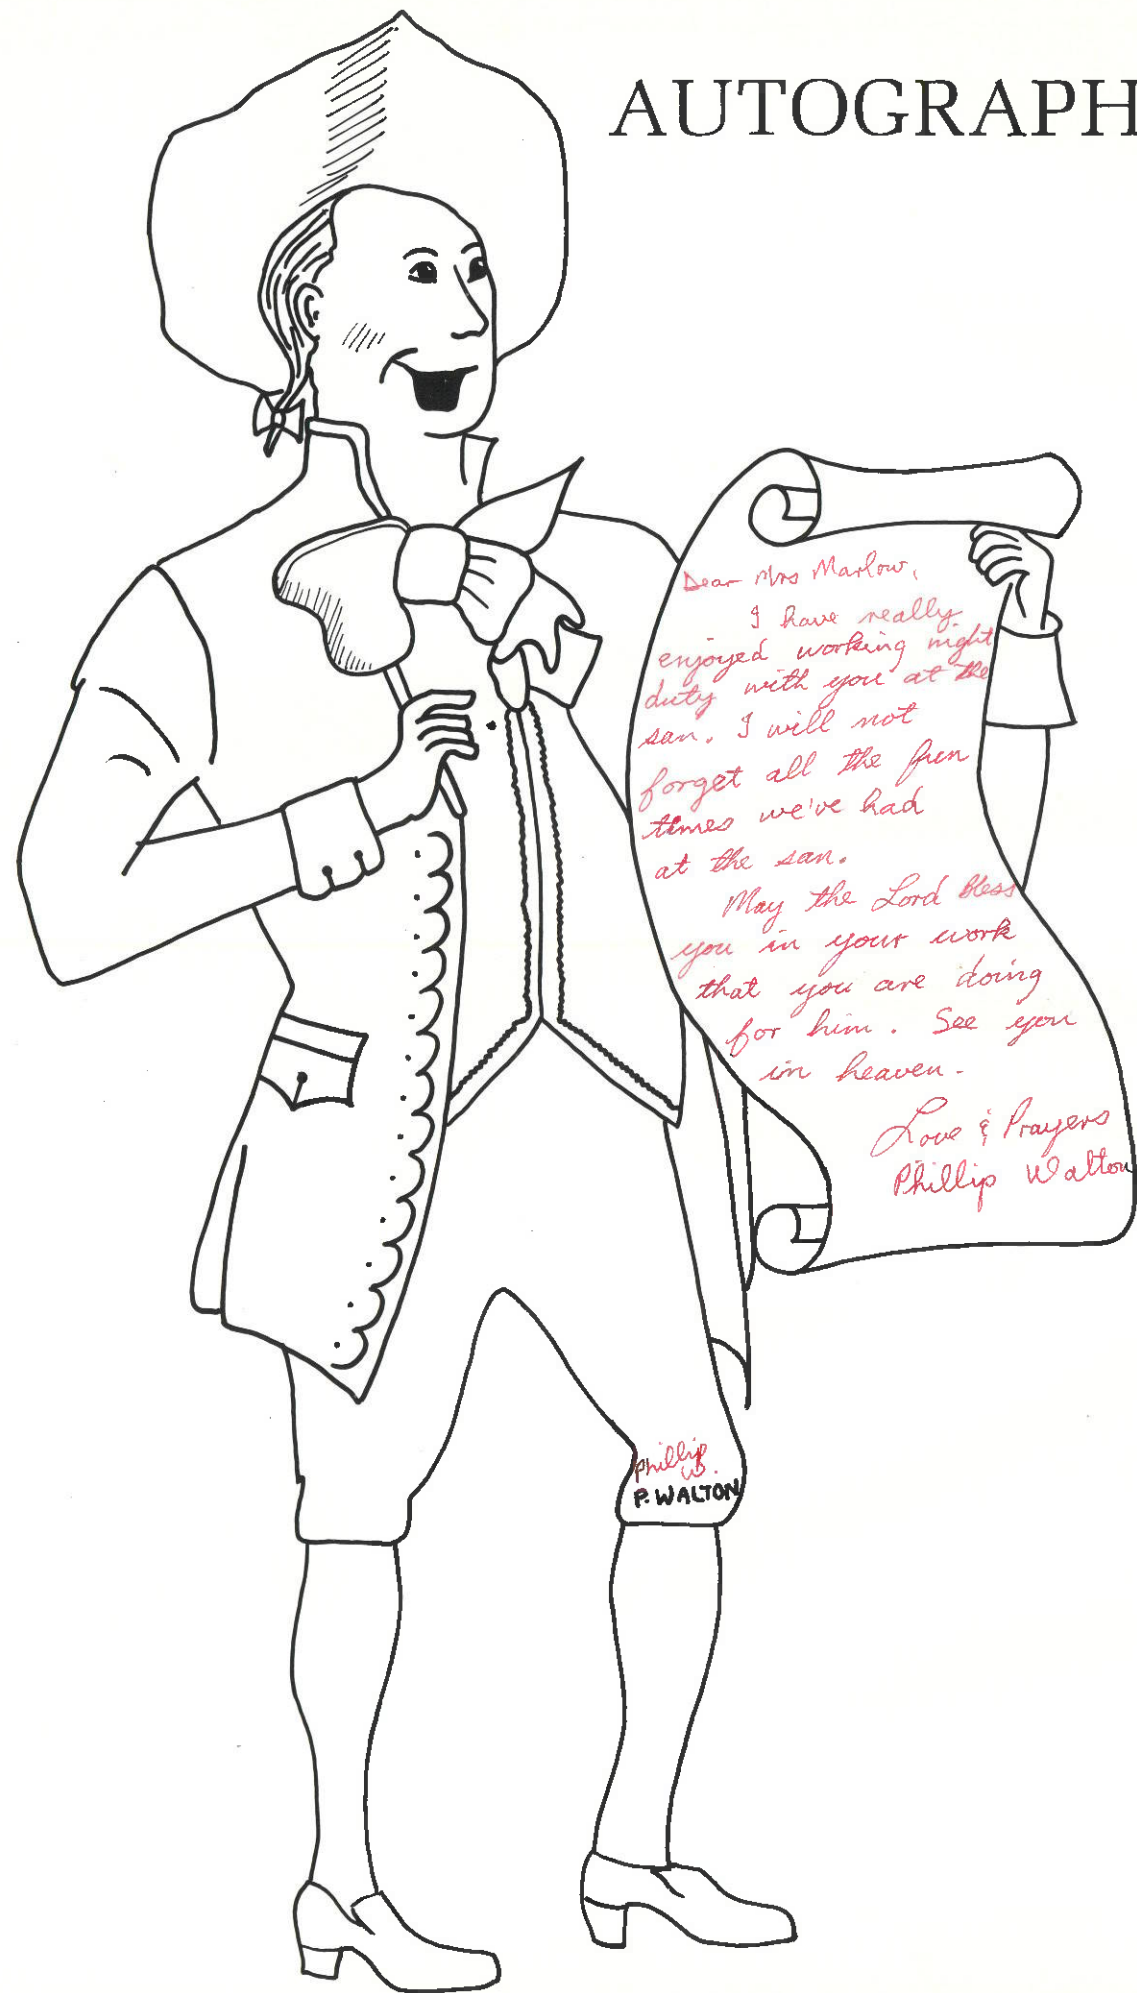 AUTOGRAPH
Dear Mrs Marlow,
I have really
enjoyed working night
duty with you at the
san. I will not
forget all the fun
times we've had
at the san.
May the Lord Bless
you in your work
that you are doing
for him. See you
in heaven.
Love & Prayers
Phillip Walton
Phillip
W.
P. WALTON